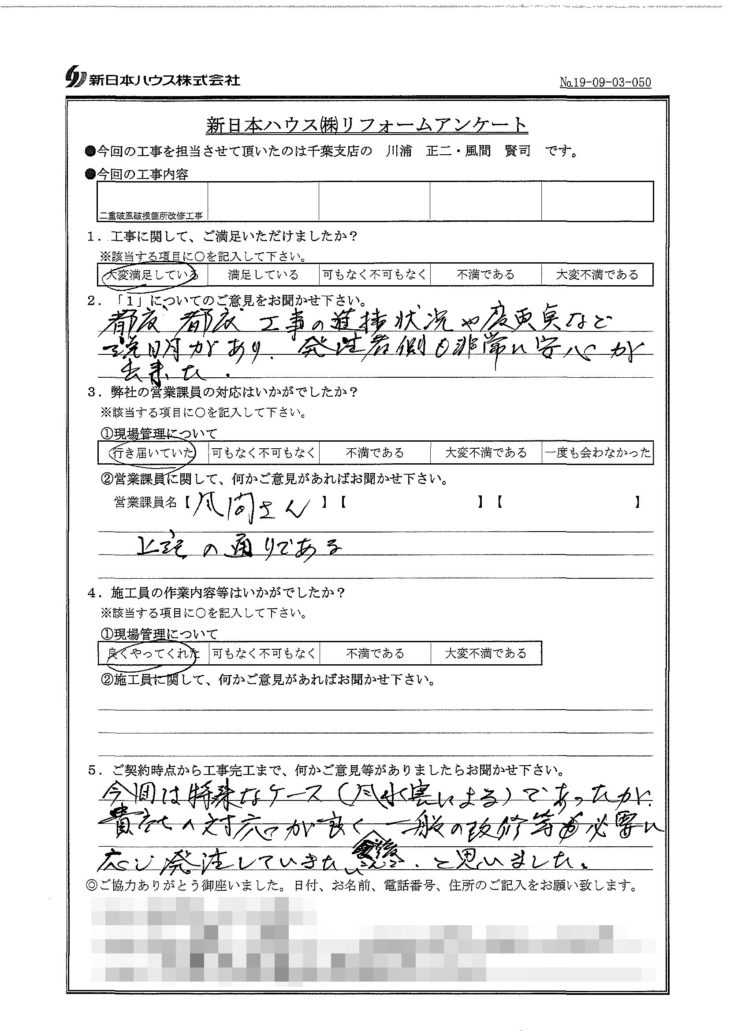 新日本ハウス株式会社
No.19-09-03-050
新日本ハウス㈱リフォームアンケート
●今回の工事を担当させて頂いたのは千葉支店の 川浦 正二・風間 賢司 です。
●今回の工事内容
二重破風破損箇所改修工事
1．工事に関して、ご満足いただけましたか？
※該当する項目に○を記入して下さい。
大変満足している 満足している 可もなく不可もなく 不満である 大変不満である
2．「1」についてのご意見をお聞かせ下さい。
都度 都度 工事の進捗状況や変更点など
説明があり、発注者側も非常に安心が
出来た.
3．弊社の営業課員の対応はいかがでしたか？
※該当する項目に○を記入して下さい。
①現場管理について
行き届いていた 可もなく不可もなく 不満である 大変不満である 一度も会わなかった
②営業課員に関して、何かご意見があればお聞かせ下さい。
営業課員名【風間さん】【 】【 】
上記の通りである
4．施工員の作業内容等はいかがでしたか？
※該当する項目に○を記入して下さい。
①現場管理について
良くやってくれた 可もなく不可もなく 不満である 大変不満である
②施工員に関して、何かご意見があればお聞かせ下さい。
5．ご契約時点から工事完工まで、何かご意見等がありましたらお聞かせ下さい。
今回は特殊なケース(風水害による)であったが、
貴社の対応が良く 一般の改修等も必要に
応じ発注していきたい 、と思いました。
◎ご協力ありがとう御座いました。日付、お名前、電話番号、住所のご記入をお願い致します。